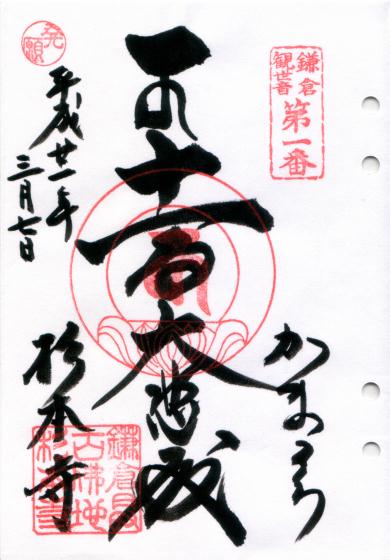 鎌倉
観世音
第一番
かまくら
十一面大悲殿
発願
平成廿一年
三月七日
杉本寺
鎌倉最
古佛地
杉本寺